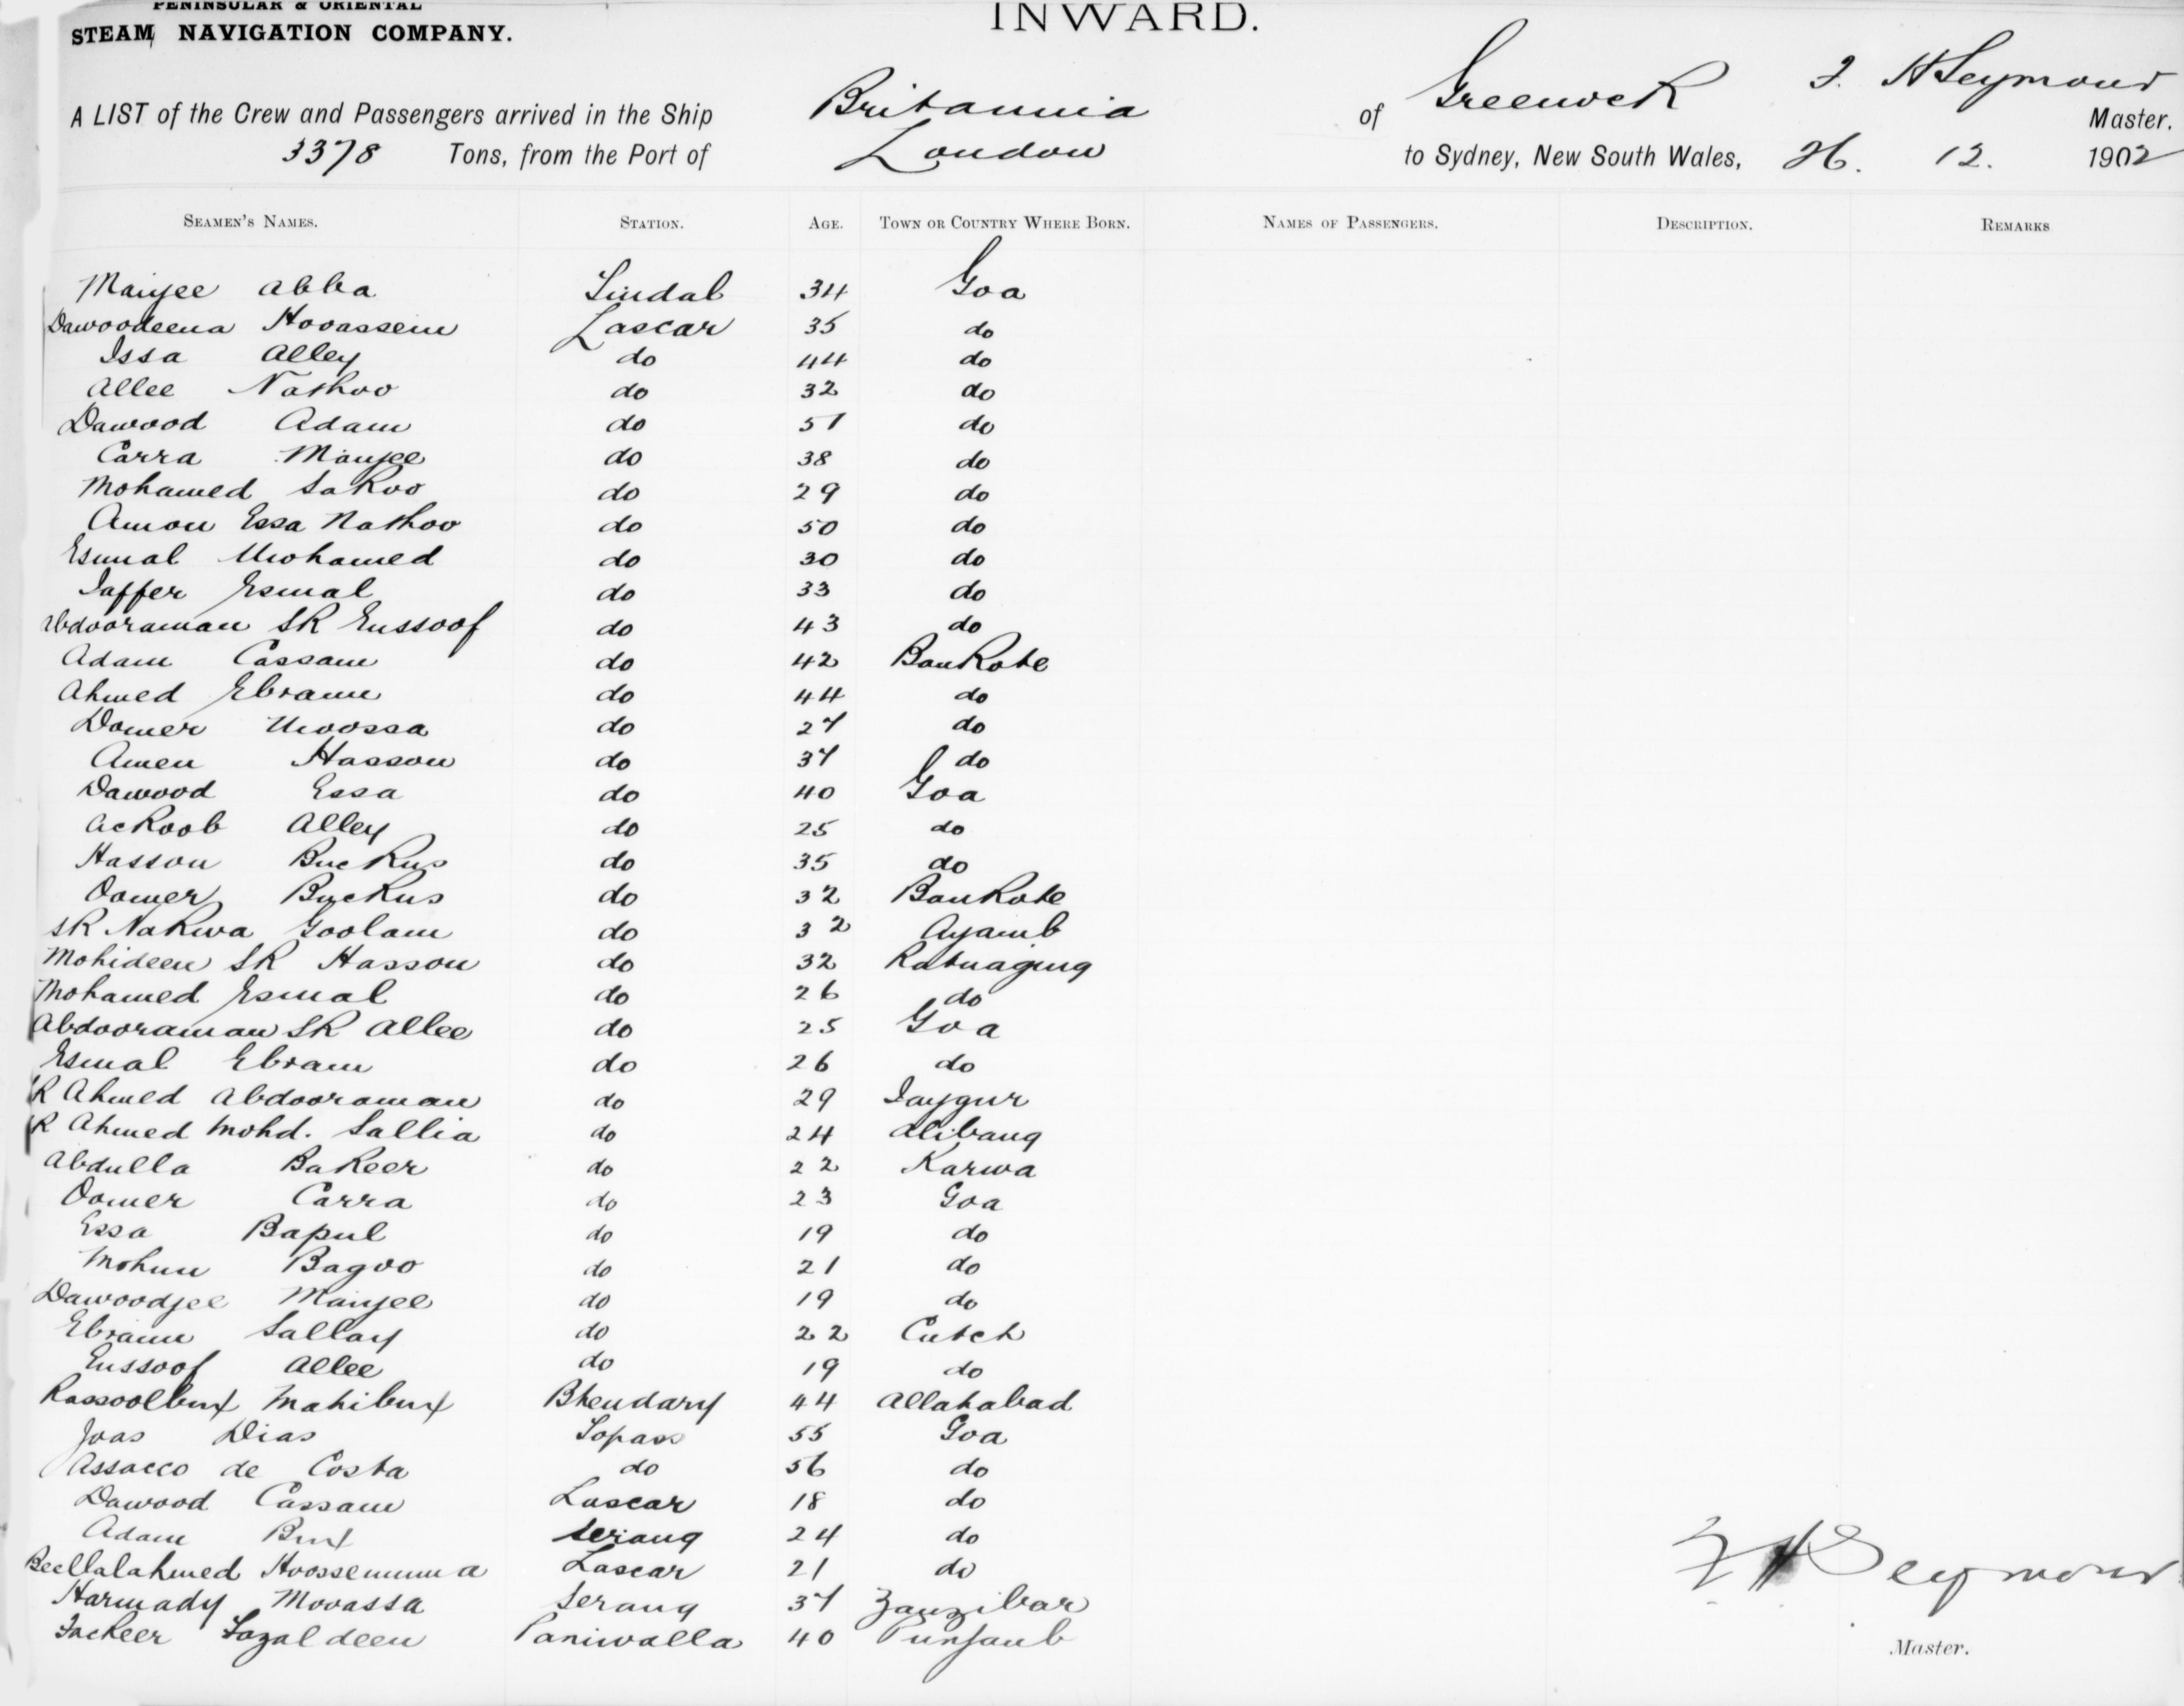 PENINSULAR & ORIENTAL
STEAM NAVIGATION COMPANY.
INWARD.
A LIST of the Crew and Passengers arrived in the Ship Britannia of Greenock F. H Seymour Master.
3378 Tons, from the Port of London to Sydney, New South Wales, 26. 12. 1902
SEAMEN'S NAMES. STATION. AGE. TOWN OR COUNTRY WHERE BORN. NAMES OF PASSENGERS. DESCRIPTION. REMARKS
Manjee Abba Tindal 34 Goa
Dawoodeena Hooassein Lascar 35 do
Issa Alley do 44 do
Allee Nathoo do 32 do
Dawood Adam do 51 do
Carra Manjee do 38 do
Mohamed Sakoo do 29 do
Amon Essa Nathoo do 50 do
Esmal Mohamed do 30 do
Jaffer Esmal do 33 do
Abdooraman Sk Eussoof do 43 do
Adam Cassam do 42 Bankote
Ahmed Ebram do 44 do
Domer Moossa do 27 do
Amen Hasson do 37 do
Dawood Essa do 40 Goa
Ackoob Alley do 25 do
Hasson Buckus do 35 do
Oomer Buckus do 32 Bankote
Sk Nakwa Goolam do 32 Ayamb
Mohideen Sk Hasson do 32 Ratnagurg
Mohamed Esmal do 26 do
Abdooraman Sk Allee do 25 Goa
Esmal Ebram do 26 do
K Ahmed Abdooraman do 29 Jaygur
K Ahmed Mohd. Sallia do 24 Alibaug
Abdulla Bakeer do 22 Karwa
Oomer Carra do 23 Goa
Essa Bapul do 19 do
Mohun Bagoo do 21 do
Dawoodjee Manjee do 19 do
Ebram Sallay do 22 Cutch
Eussoof Allee do 19 do
Rassoolbux Mahibux Bhendary 44 Allahabad
Joas Dias Topass 55 Goa
Assacco de Costa do 56 do
Dawood Cassam Lascar 18 do
Adam Bux Serang 24 do
Beellalahmed Hoossenumma Lascar 21 do
Harmady Movassa Serang 37 Zanzibar
Fackeer Fazaldeen Paniwalla 40 Punjaub
F H Seymour
Master.